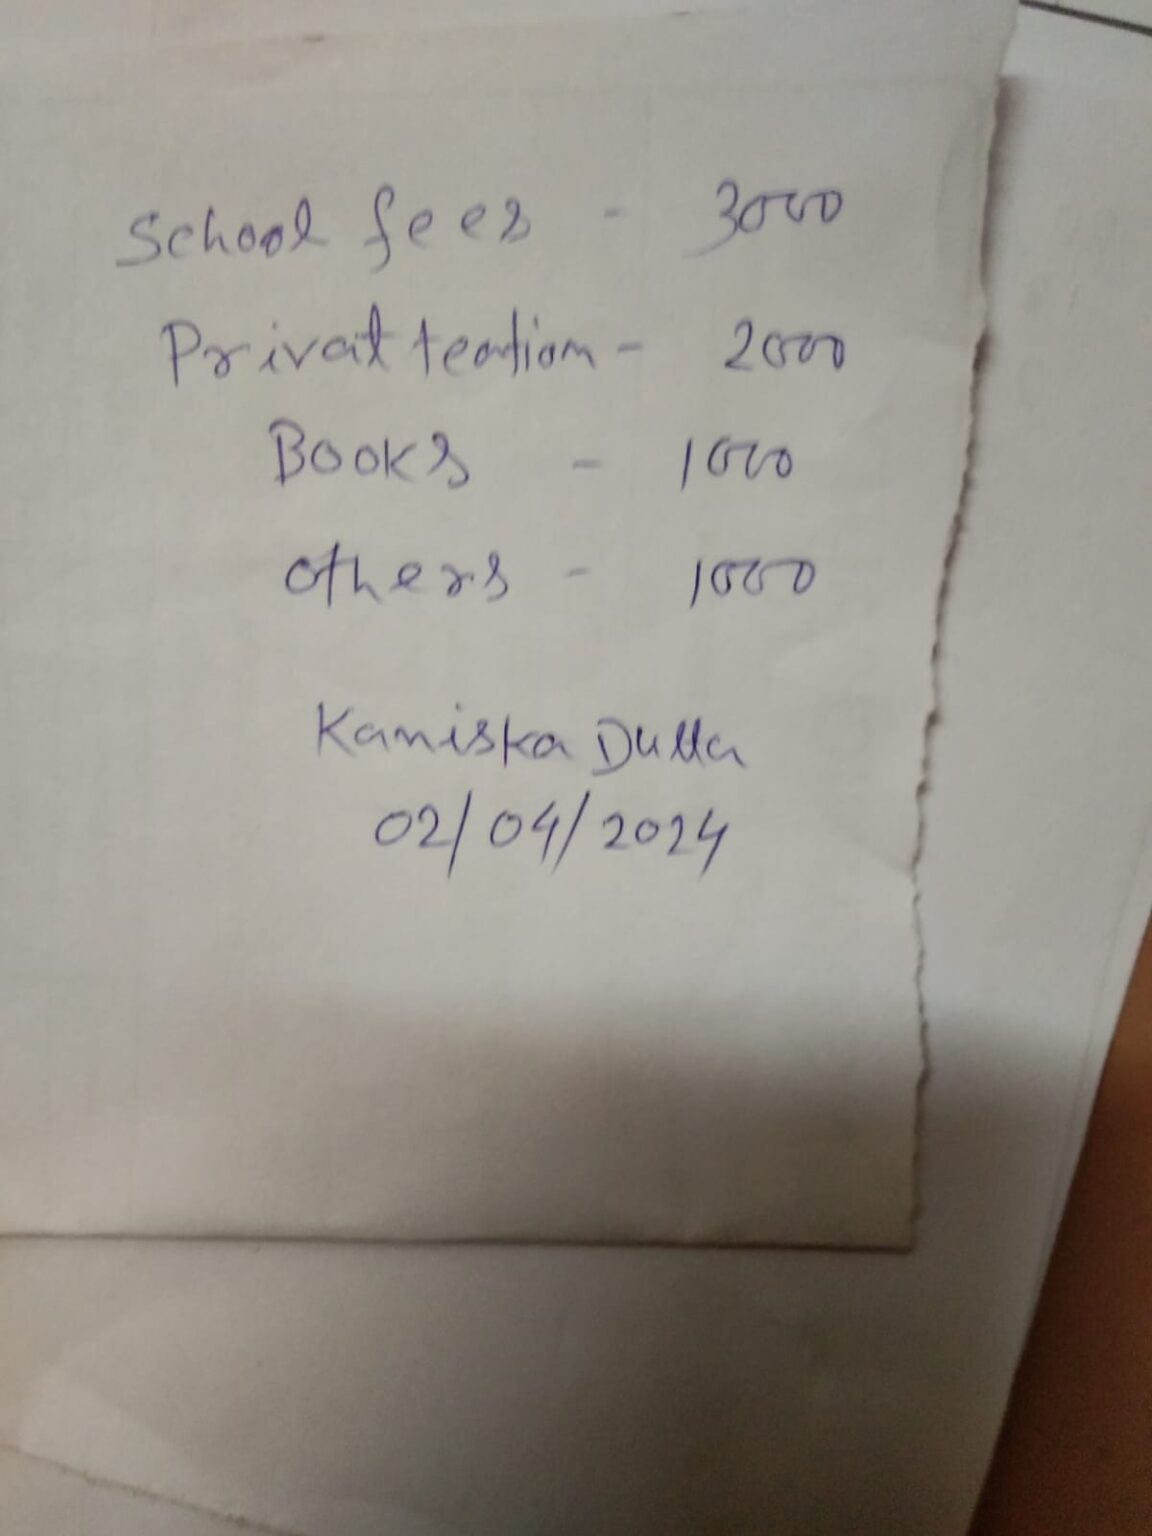 School fees - 3000
Privat teation - 2000
Books - 1000
others - 1000
Kaniska Dutta
02/04/2024